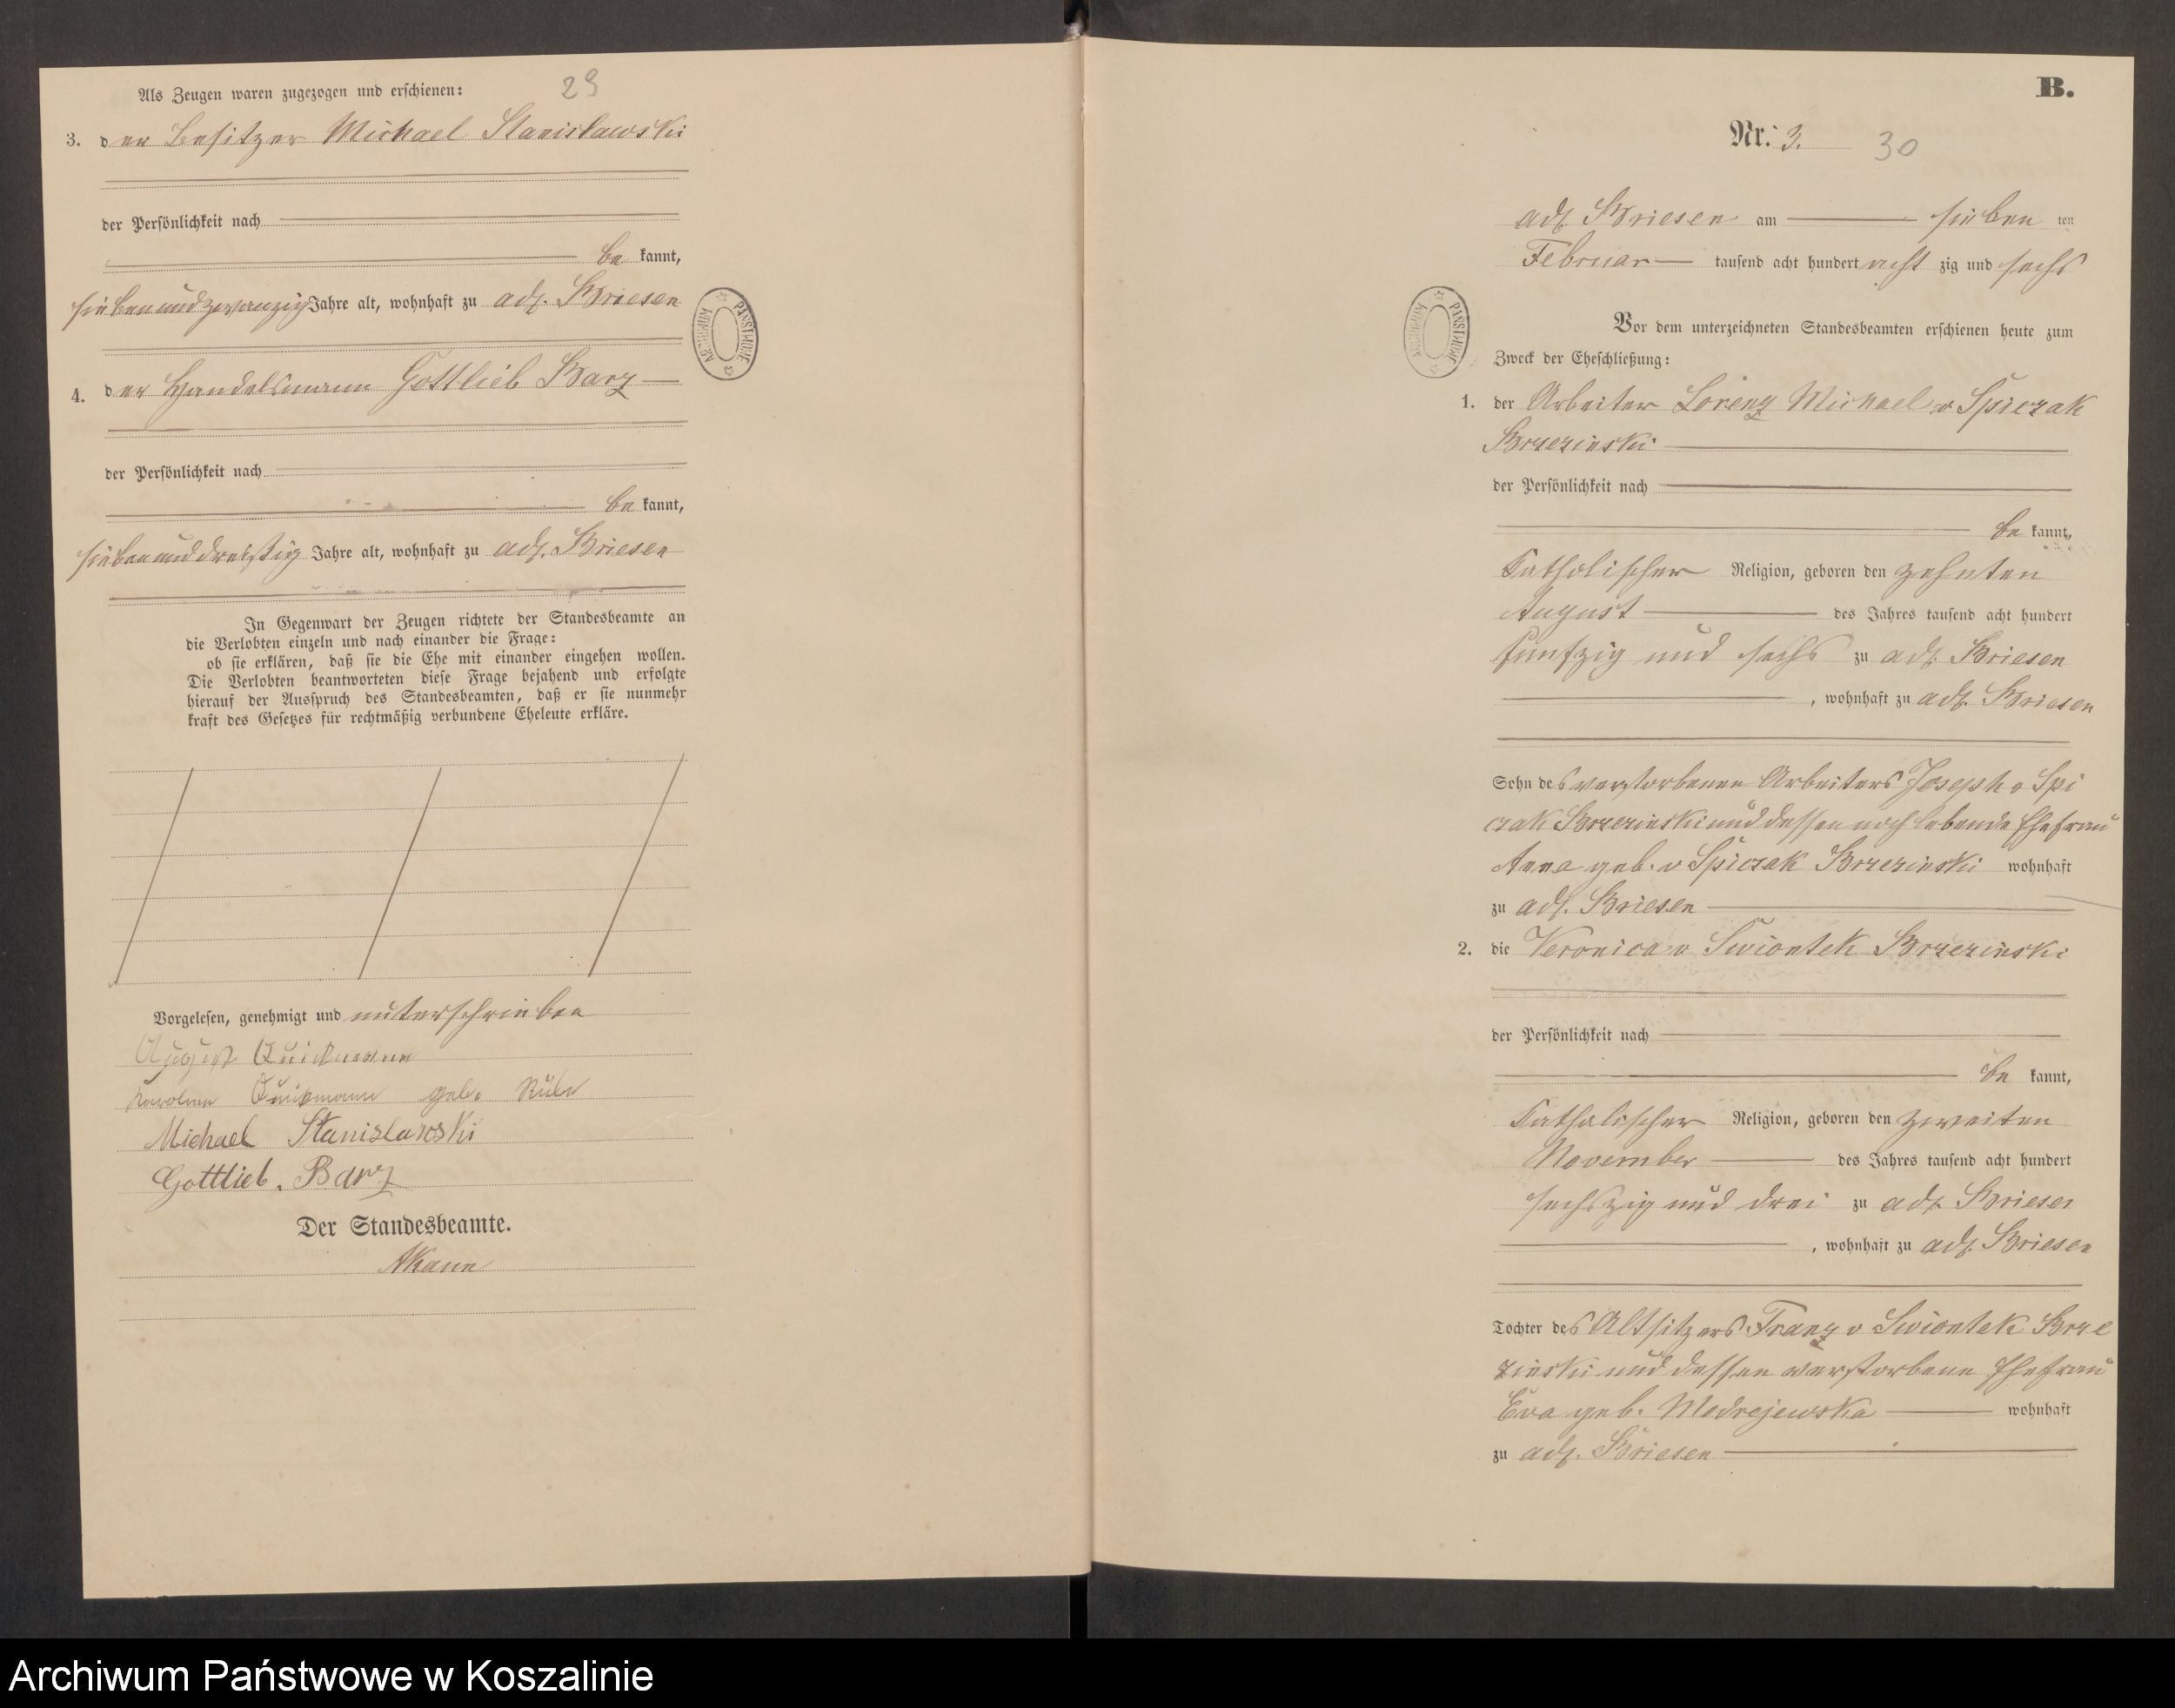 29
Als Zeugen waren zugezogen und erschienen:
3. der Besitzer Michael Stanislawski
der Persönlichkeit nach
be kannt,
siebenundzwanzig Jahre alt, wohnhaft zu adl. Briesen
4. der Handelsmann Gottlieb Barz
der Persönlichkeit nach
be kannt,
siebenunddreißig Jahre alt, wohnhaft zu adl. Briesen
In Gegenwart der Zeugen richtete der Standesbeamte an
die Verlobten einzeln und nach einander die Frage:
ob sie erklären, daß sie die Ehe mit einander eingehen wollen.
Die Verlobten beantworteten diese Frage bejahend und erfolgte
hierauf der Ausspruch des Standesbeamten, daß er sie nunmehr
kraft des Gesetzes für rechtmäßig verbundene Eheleute erkläre.
Vorgelesen, genehmigt und unterschrieben
August
geb.
Michael Stanislawski
Gottlieb. Barz
Der Standesbeamte.
ARCHIWUM PAŃSTWOWE
B.
Nr. 3. 30
adl. Briesen am sieben ten
Februar tausend acht hundert acht zig und sechs
Vor dem unterzeichneten Standesbeamten erschienen heute zum
Zweck der Eheschließung:
1. der Arbeiter Lorenz Michael v Spiczak
Brzezinski
der Persönlichkeit nach
be kannt,
katholischer Religion, geboren den zehnten
August des Jahres tausend acht hundert
fünfzig und sechs zu adl. Briesen
, wohnhaft zu adl. Briesen
Sohn des verstorbenen Arbeiters Joseph v Spi
czak Brzezinski und dessen noch lebende Ehefrau
Anna geb. v Spiczak Brzezinski wohnhaft
zu adl. Briesen
2. die Veronica v Swiontek Brzezinski
der Persönlichkeit nach
be kannt,
katholischer Religion, geboren den zweiten
November des Jahres tausend acht hundert
sechszig und drei zu adl. Briesen
, wohnhaft zu adl. Briesen
Tochter des Altsitzers Franz v Swiontek Brze
zinski und dessen verstorbene Ehefrau
Eva geb. Modrejewska wohnhaft
zu adl. Briesen
ARCHIWUM PAŃSTWOWE
Archiwum Państwowe w Koszalinie